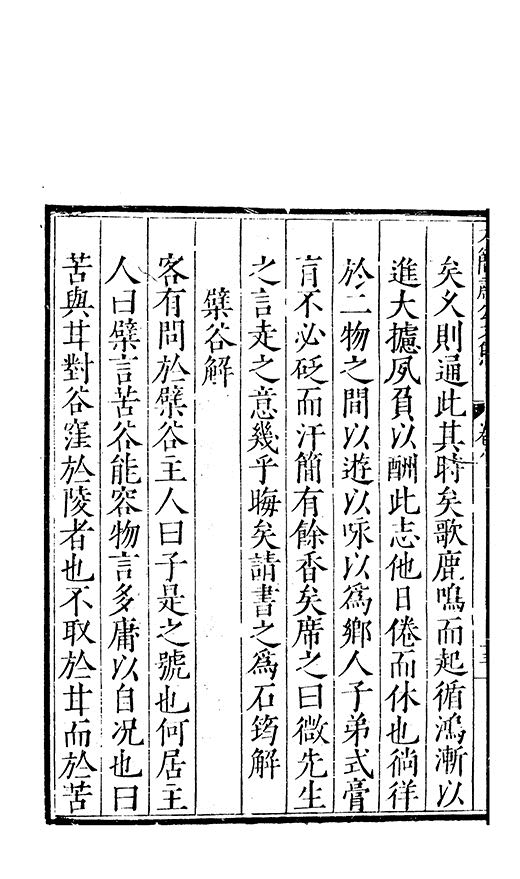 矣久則通此其時矣歌鹿鳴而起循鴻漸以
進大攄夙負以酬此志他日倦而休也徜徉
於二物之間以遊以咏以為鄉人子弟式膏
肓不必砭而汗簡有餘香矣席之曰微先生
之言走之意幾乎晦矣請書之為石筠解
檗谷解
客有問於檗谷主人曰子是之號也何居主
人曰檗言苦谷能容物言多庸以自况也曰
苦與甘對谷窪於陵者也不取於甘而於苦